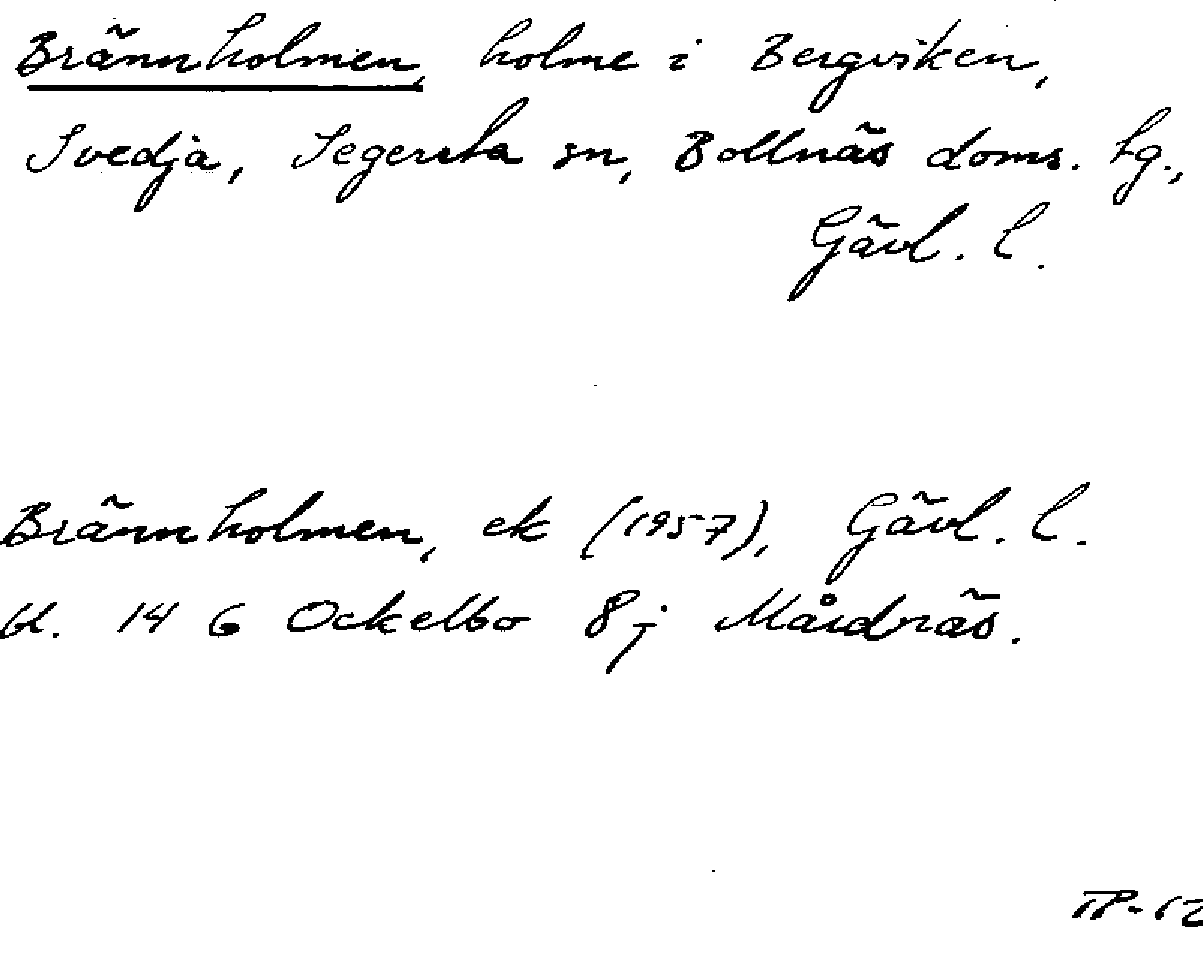 Brännholmen, holme i Bergviken,
Svedja, Segersta sn, Bollnäs doms. tg.,
Gävl. l.
Brännholmen, ek (1957), Gävl. l.
bl. 14 G Ockelbo 8 j Mårdnäs.